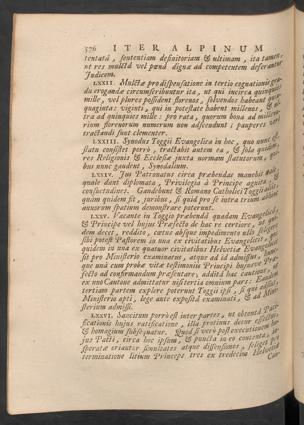 576 ITER ALPINUM
tentatâ, sententiam definitoriam & ultimam, ita tamen,
ut res mulctâ vel pœnâ dignæ ad competentem deferantur
Judicem.
LXXII. Mulctæ pro dispensatione in tertio cognationis gradu
erogandæ circumscribuntur ita, ut qui incirca quinquies
mille, vel plures possident florenos, solvendos habeant
quaginta: viginti, qui in potestate habent millenos, & ultra
ad quinquies mille: pro rata, quorum bona ad millenarium
florenorum numerum non adscendunt; pauperes
tractandi sunt clementer.
LXXIII. Synodus Toggii Evangelica in hoc, quo nunc est,
statu consistet porrò, tractabit autem ea, & sola quidem,
res Religionis & Ecclesiæ juxta normam statutorum,
bus nunc gaudent, Synodalium.
LXXIV. Jus Patronatus circa præbendas manebit
quale dant diplomata, Privilegia à Principe agnita &
consuetudines. Candidati & Romano Catholici Toggii
quàm quidem sit, potibus, si quid pro se intra trium
annorum spatium demonstrare poterunt.
LXXV. Vacante in Toggio præbendâ quadam Evangelicâ,
& Principe vel hujus Præfecto de hac re certiore,
dem decet, reddito, cœtus absque impedimento ullo
sibi potest Pastorem in una ex civitatibus Evangelicis
quidem in una ex quatuor civitatibus Helvetiæ Evangelicis
sit pro Ministerio examinatus, atque ad id admissus,
que unà cum probæ vitæ testimoniis Principi hujusve Præfecto
ad confirmandum præsentare, additâ hac cautione,
ex uno Cantone admittatur nisi tertia omnium pars:
tertiam partem explere poterunt Toggii ipsi, si qui
Ministerio apti, lege ante expositâ examinati, & ad
sterium admissi.
LXXVI. Sancitum porrò est inter partes, ut obtentâ
ficationis hujus ratificatione, illa protinus detur effectui,
& homagium subsequatur. Quod si verò post executionem
jus Pacti, circa hoc ipsum, & puncta in eo contenta,
speratæ oriantur simultates atque dissensiones,
terminatione litium Princeps tres ex tredecim Helvetiæ
Can-